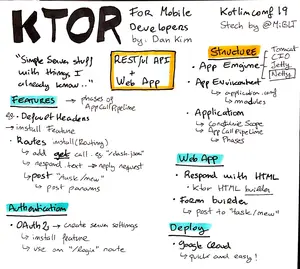 KTOR
FOR Mobile
Developers
by: Dan Kim
Kotlinconf 19
"Simple Server stuff
with things I
already know.."
RESTful API
+
Web App
FEATURES → phases of
AppCallPipeline
ex. Default Headers
→ install Feature
• Routes install(Routing)
↳ add get call. eg. "/dash.json"
↳ respond.text → reply request
↳ post "task/new"
↳ post params
Authentication
• OAuth2 → create server settings
↳ install feature
↳ use on "/login" route
Structure
• App Engine
Tomcat
CIO
Jetty
Netty
• App Environment
↳ application.conf
↳ modules
• Application
↳ Coroutine Scope
↳ App Call Pipeline
↳ Phases
Web App
• Respond with HTML
• Ktor HTML builder
• Form builder
↳ post to "task/new"
Deploy
• Google Cloud
↳ quick and easy!